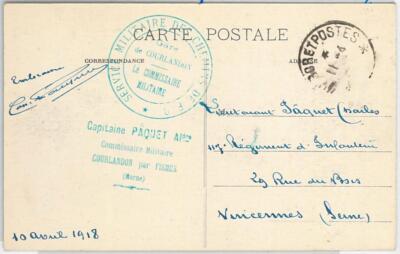 CARTE POSTALE
CORRESPONDANCE
ADRESSE
SERVICE MILITAIRE DES CHEMINS DE FER
Gare
de COURLANDON
LE COMMISSAIRE
MILITAIRE
TRESOR ET POSTES
Capitaine PAQUET
Commissaire Militaire
COURLANDON par FISMES
(Marne)
10 Avril 1918
Lieutenant Paquet Charles
117 Régiment d'Infanterie
29 Rue du Bois
Vincennes (Seine)